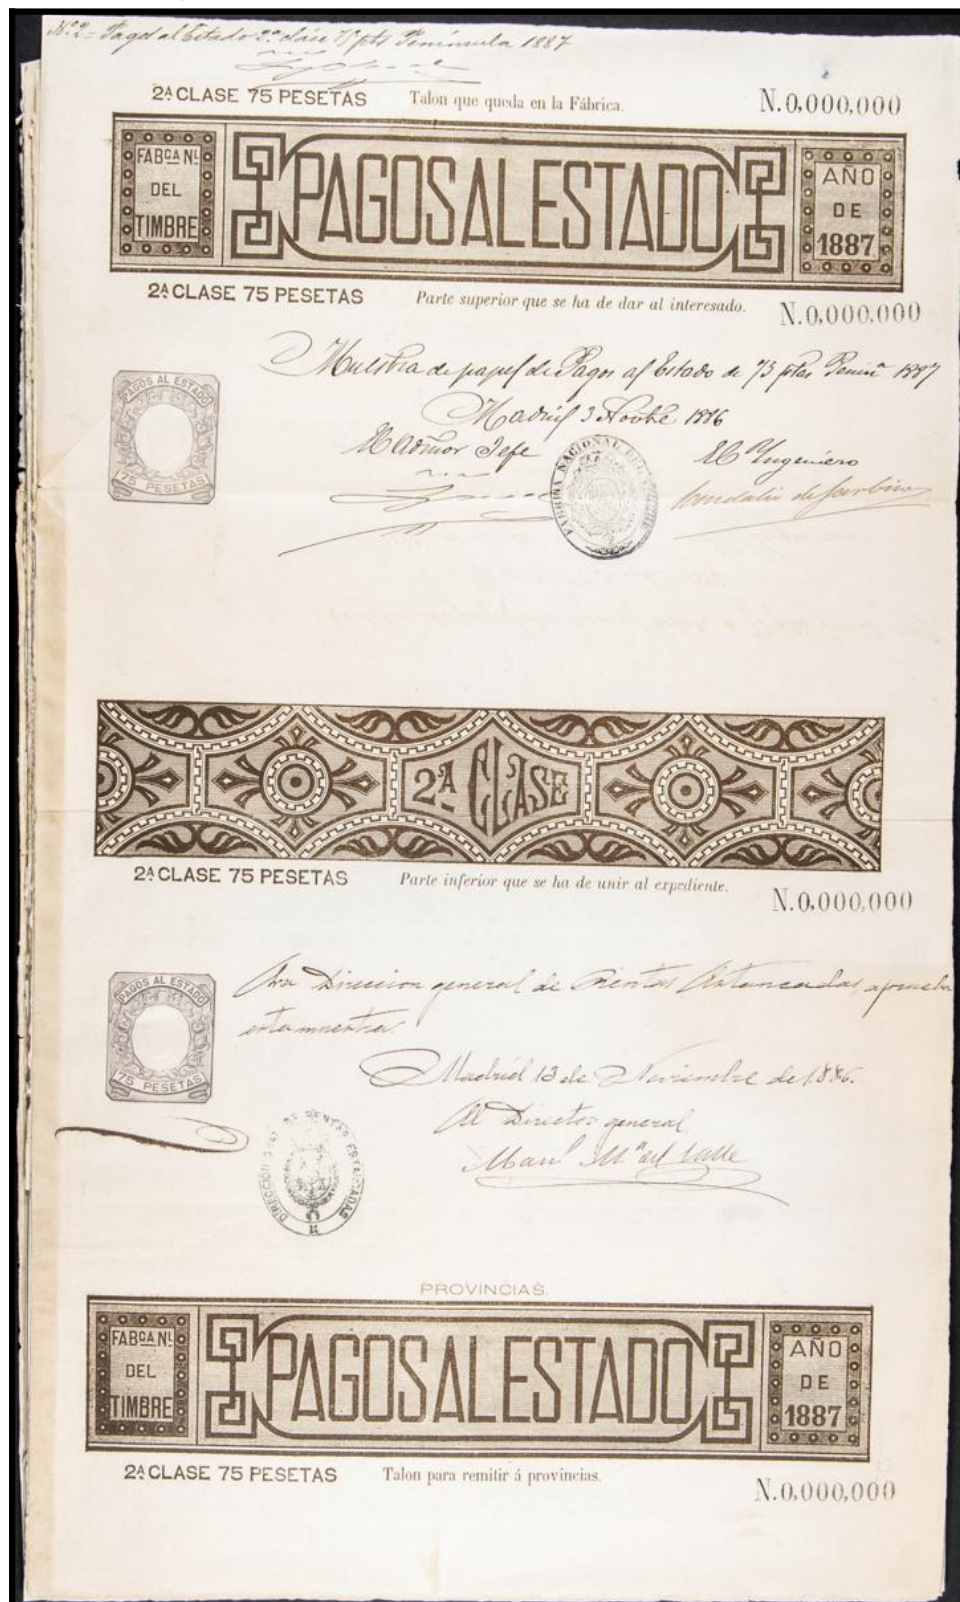 Nº 2 = Pagos al Estado 2ª clase 75 pts Península 1887
2ª CLASE 75 PESETAS Talon que queda en la Fábrica. N.0,000,000
FABCA NL DEL TIMBRE PAGOS AL ESTADO AÑO DE 1887
2ª CLASE 75 PESETAS Parte superior que se ha de dar al interesado. N.0,000,000
Muestra de papel de Pagos al Estado de 75 ptas Peninª 1887
PAGOS AL ESTADO
75 PESETAS
Madrid 3 Novbre 1886
El Admor Jefe El Ingeniero
FABRICA NACIONAL DEL TIMBRE
2ª CLASE
2ª CLASE 75 PESETAS Parte inferior que se ha de unir al expediente. N.0,000,000
PAGOS AL ESTADO
75 PESETAS
Direccion general de Rentas Estancadas, aprueba
esta muestra
Madrid 13 de Noviembre de 1.886.
El Director general
Manl Mª del Valle
DIRECCIÓN GRAL DE RENTAS ESTANCADAS
PROVINCIAS.
FABCA NL DEL TIMBRE PAGOS AL ESTADO AÑO DE 1887
2ª CLASE 75 PESETAS Talon para remitir á provincias. N.0,000,000